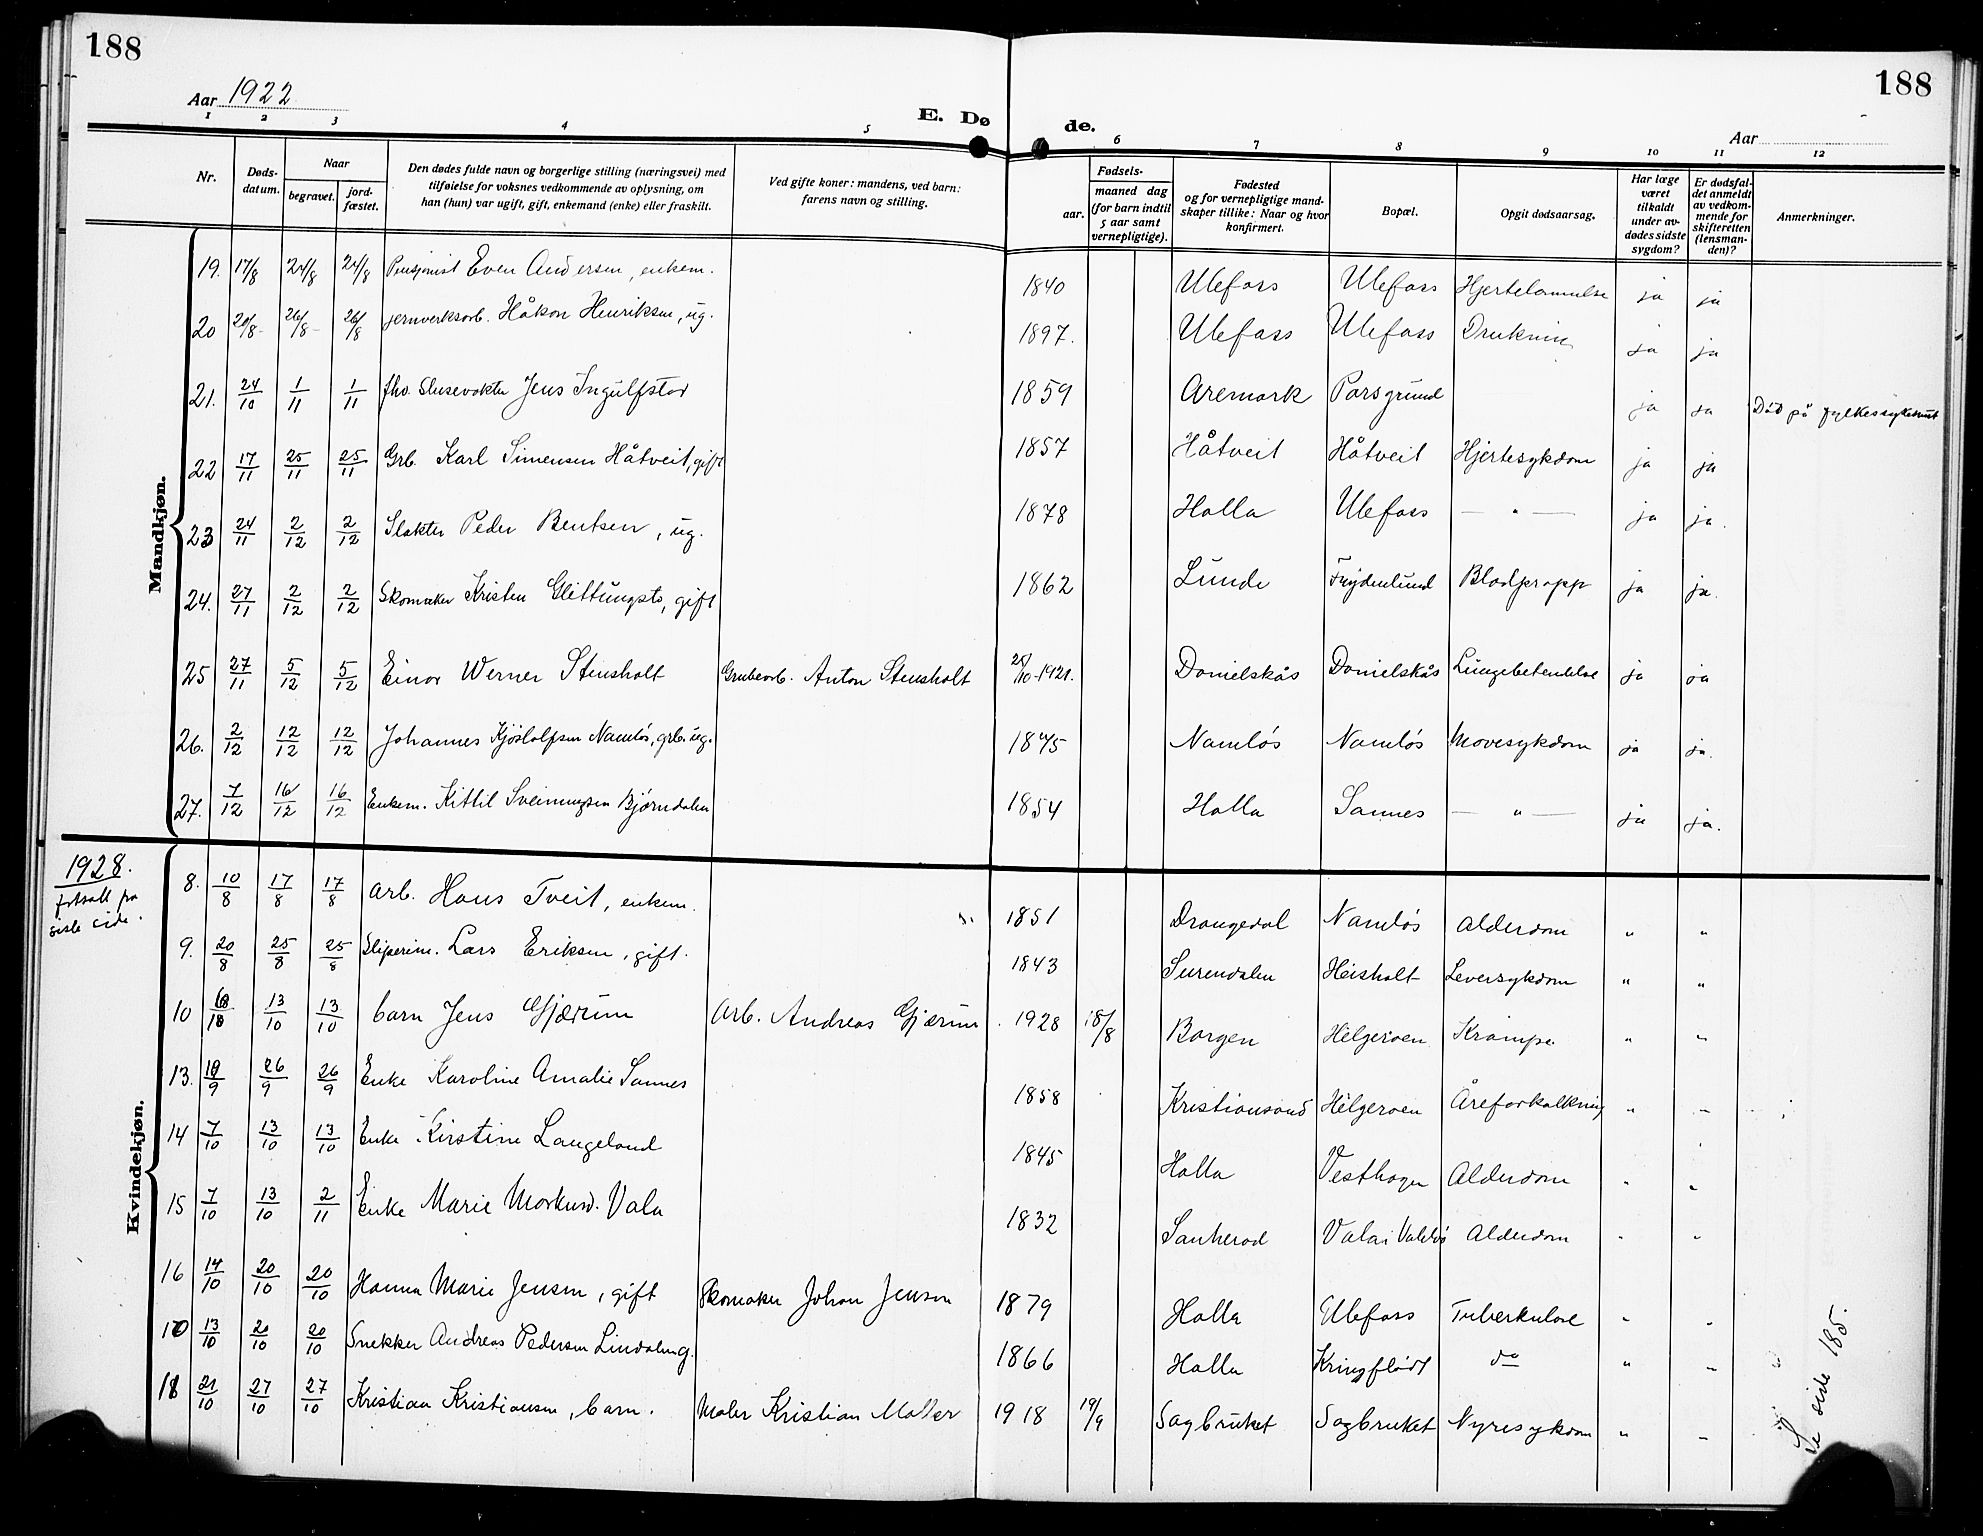 188
188
Aar 1922
E. Døde.
Aar
1 2 3 4 5 6 7 8 9 10 11 12
Nr.
Døds-datum.
Naar
begravet.
jord-fæstet.
Den dødes fulde navn og borgerlige stilling (næringsvei) med tilføielse for voksnes vedkommende av oplysning, om han (hun) var ugift, gift, enkemand (enke) eller fraskilt.
Ved gifte koner: mandens, ved barn: farens navn og stilling.
Fødsels-
aar.
maaned dag (for barn indtil 5 aar samt vernepligtige).
Fødested og for vernepligtige mand-skaper tillike: Naar og hvor konfirmert.
Bopæl.
Opgit dødsaarsag.
Har læge været tilkaldt under av-dødes sidste sygdom?
Er dødsfal-det anmeldt av vedkom-mende for skifteretten (lensman-den)?
Anmerkninger.
Mandkjøn.
19. 17/8 24/8 24/8 Pensjonist Even Andersen, enkem. 1840 Ulefoss Ulefoss Hjertelammelse ja ja
20 20/8 26/8 26/8 jernverksarb. Håkon Henriksen, ug. 1897. Ulefoss Ulefoss Drukning ja ja
21. 24/10 1/11 1/11 fhv. Slusevokter Jens Ingulfstad 1859 Aremark Porsgrund ja ja Død på fylkessykehuset
22 17/11 25/11 25/11 Grb. Karl Simensen Håtveit, gift 1857 Håtveit Håtveit Hjertesykdom ja ja
23 24/11 2/12 2/12 Slakter Peder Bentsen, ug. 1878 Holla Ulefoss — " — ja ja.
24. 27/11 2/12 2/12 Skomaker Kristen Glittungsto, gift 1862 Lunde Frydenlund Blodpropp ja ja.
25 27/11 5/12 5/12 Einar Werner Stensholt Grubearb. Anton Stensholt 25/10-1921. Danielskås Danielskås Lungebetendelse ja ja
26. 2/12 12/12 12/12 Johannes Kjöstolfsen Namløs, grb. ug. 1845 Namløs Namløs Mavesykdom ja ja.
27. 7/12 16/12 16/12 Enkem. Kittil Sveinungsen Bjørndalen 1854 Holla Sannes — " — ja ja.
1928.
fortsatt fra
siste side.
Kvindekjøn.
8. 10/8 17/8 17/8 Arb. Hans Tveit, enkem. 1851 Drangedal Namløs Alderdom " "
9. 20/8 25/8 25/8 Sliperim. Lars Eriksen, gift. 1843 Surendalen Heisholt Leversykdom " "
10 13/10 13/10 barn Jens Gjærum Arb. Andreas Gjærum. 1928 18/8 Borgen Helgeroen Krampe " "
13. 26/9 26/9 Enke Karoline Amalie Sannes 1858 Kristiansand Helgeroen Åreforkalkning " "
14 7/10 13/10 13/10 Enke Kirstine Langeland 1845 Holla Vesthagen Alderdom " "
15 7/10 13/10 2/11 Enke Marie Markusd. Vala 1832 Sauherad Vala i Valebø Alderdom " "
16 14/10 20/10 20/10 Hanna Marie Jensen, gift Skomaker Johan Jensen 1879 Holla Ulefoss Tuberkulose " "
13/10 20/10 20/10 Snekker Andreas Pedersen Lindalen g. 1866 Holla Kringflødt do " "
18 21/10 27/10 27/10 Kristian Kristiansen, barn. Maler Kristian Møller 1918 19/9 Sagbruket Sagbruket Nyresykdom " "
Se side 185.